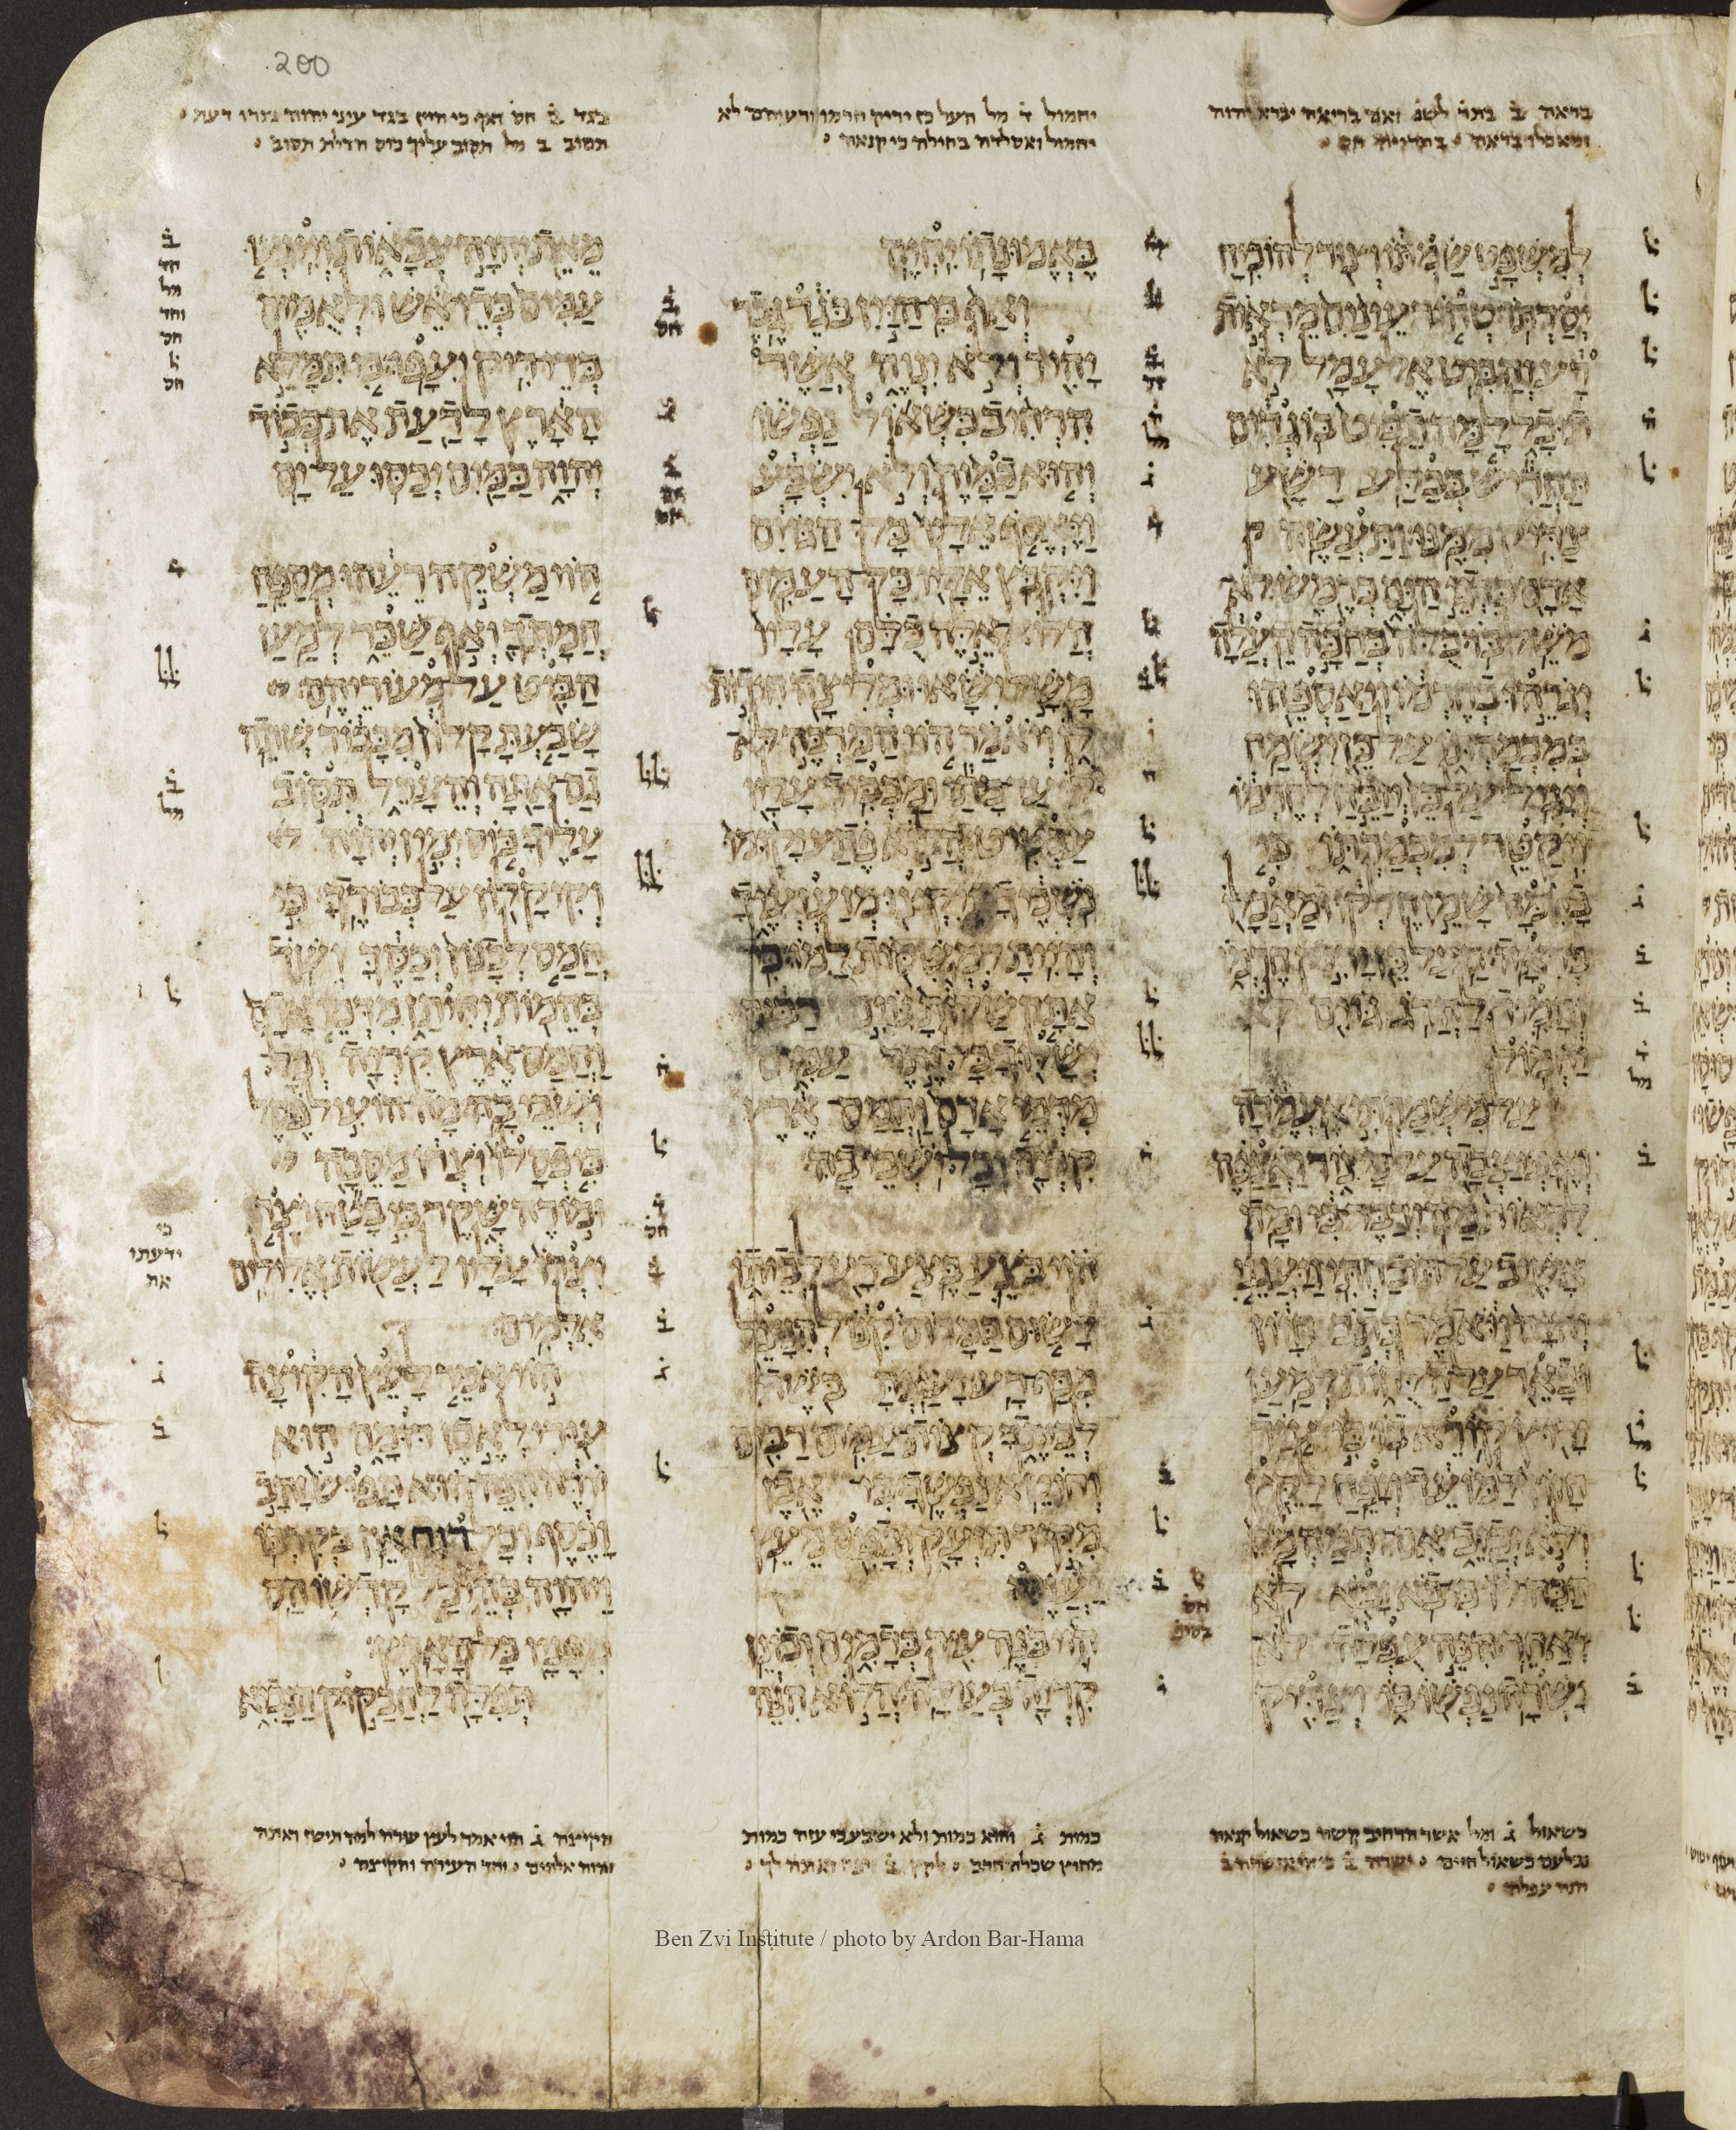 200
בראה ב֗ בתר֗ לשנ֗ ואם בריאה יברא יהוה
ומאכלו בראה
יחמול ד֗ מל העל כן יריק חרמו ורעיתם לא
יחמול ואסלדה בחילה כי קנאה
בגד ב֗ חס֗ ואף כי היין בגד עיני יהוה נצרו דעת
תסוב ב מל תסוב עליך כוס הדלת תסוב
למשפט שמתו וצור להוכיח
יסדתו טהור עינים מראות
רע והביט אל עמל לא
תוכל למה תביט בוגדים
תחריש בבלע רשע
צדיק ממנו ותעשה
אדם כדגי הים כרמש לא
משל בו כלה בחכה העלה
יגרהו בחרמו ויאספהו
במכמרתו על כן ישמח
ויגיל על כן יזבח לחרמו
ויקטר למכמרתו כי
בהמה שמן חלקו ומאכלו
בראה העל כן יריק חרמו
ותמיד להרג גוים לא
יחמול
על משמרתי אעמדה
ואתיצבה על מצור ואצפה
לראות מה ידבר בי ומה
אשיב על תוכחתי ויענני
יהוה ויאמר כתב חזון
ובאר על הלחות למען
ירוץ קורא בו כי עוד
חזון למועד ויפח לקץ
ולא יכזב אם יתמהמה
חכה לו כי בא יבא לא
יאחר הנה עפלה לא
ישרה נפשו בו וצדיק
באמונתו יחיה
ואף כי היין בגד גבר
יהיר ולא ינוה אשר
הרחיב כשאול נפשו
והוא כמות ולא ישבע
ויאסף אליו כל הגוים
ויקבץ אליו כל העמים
הלוא אלה כלם עליו
משל ישאו ומליצה חידות
לו ויאמר הוי המרבה לא
לו עד מתי ומכביד עליו
עבטיט הלוא פתע יקומו
נשכיך ויקצו מזעזעיך
והיית למשסות למו כי
אתה שלות גוים רבים
ישלוך כל יתר עמים
מדמי אדם וחמס ארץ
קריה וכל ישבי בה
הוי בצע בצע רע לביתו
לשום במרום קנו להנצל
מכף רע יעצת בשת
לביתך קצות עמים רבים
וחוטא נפשך כי אבן
מקיר תזעק וכפיס מעץ
יעננה
הוי בנה עיר בדמים וכונן
קריה בעולה הלוא הנה
מאת יהוה צבאות וייגעו
עמים בדי אש ולאמים
בדי ריק יעפו כי תמלא
הארץ לדעת את כבוד
יהוה כמים יכסו על ים
הוי משקה רעהו מספח
חמתך ואף שכר למען
הביט על מעוריהם
שבעת קלון מכבוד שתה
גם אתה והערל תסוב
עליך כוס ימין יהוה
וקיקלון על כבודך כי
חמס לבנון יכסך ושד
בהמות יחיתן מדמי אדם
וחמס ארץ קריה וכל
ישבי בה מה הועיל פסל
כי פסלו יצרו מסכה
ומורה שקר כי בטח יצר
יצרו עליו לעשות אלילים
אלמים
הוי אמר לעץ הקיצה
עורי לאבן דומם הוא
יורה הנה הוא תפוש זהב
וכסף וכל רוח אין בקרבו
ויהוה בהיכל קדשו הס
מפניו כל הארץ
תפלה לחבקוק הנביא
כי
ידעתו
את
כשאול ג֗ ומל אשר הרחיב קשה כשאול קנאה
נבלעם כשאול חיים
הנה עפלה
כמות ג֗ והוא כמות ולא ישבע כי עזה כמות
מחוץ שכלה חרב
הקיצה ג֗ הוי אמר לעץ עורה למה תישן ואתה
יהוה אלהים וחד העירה והקיצה
Ben Zvi Institute / photo by Ardon Bar-Hama